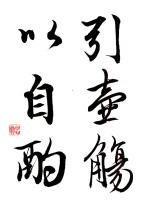 引壺觴
以自酌